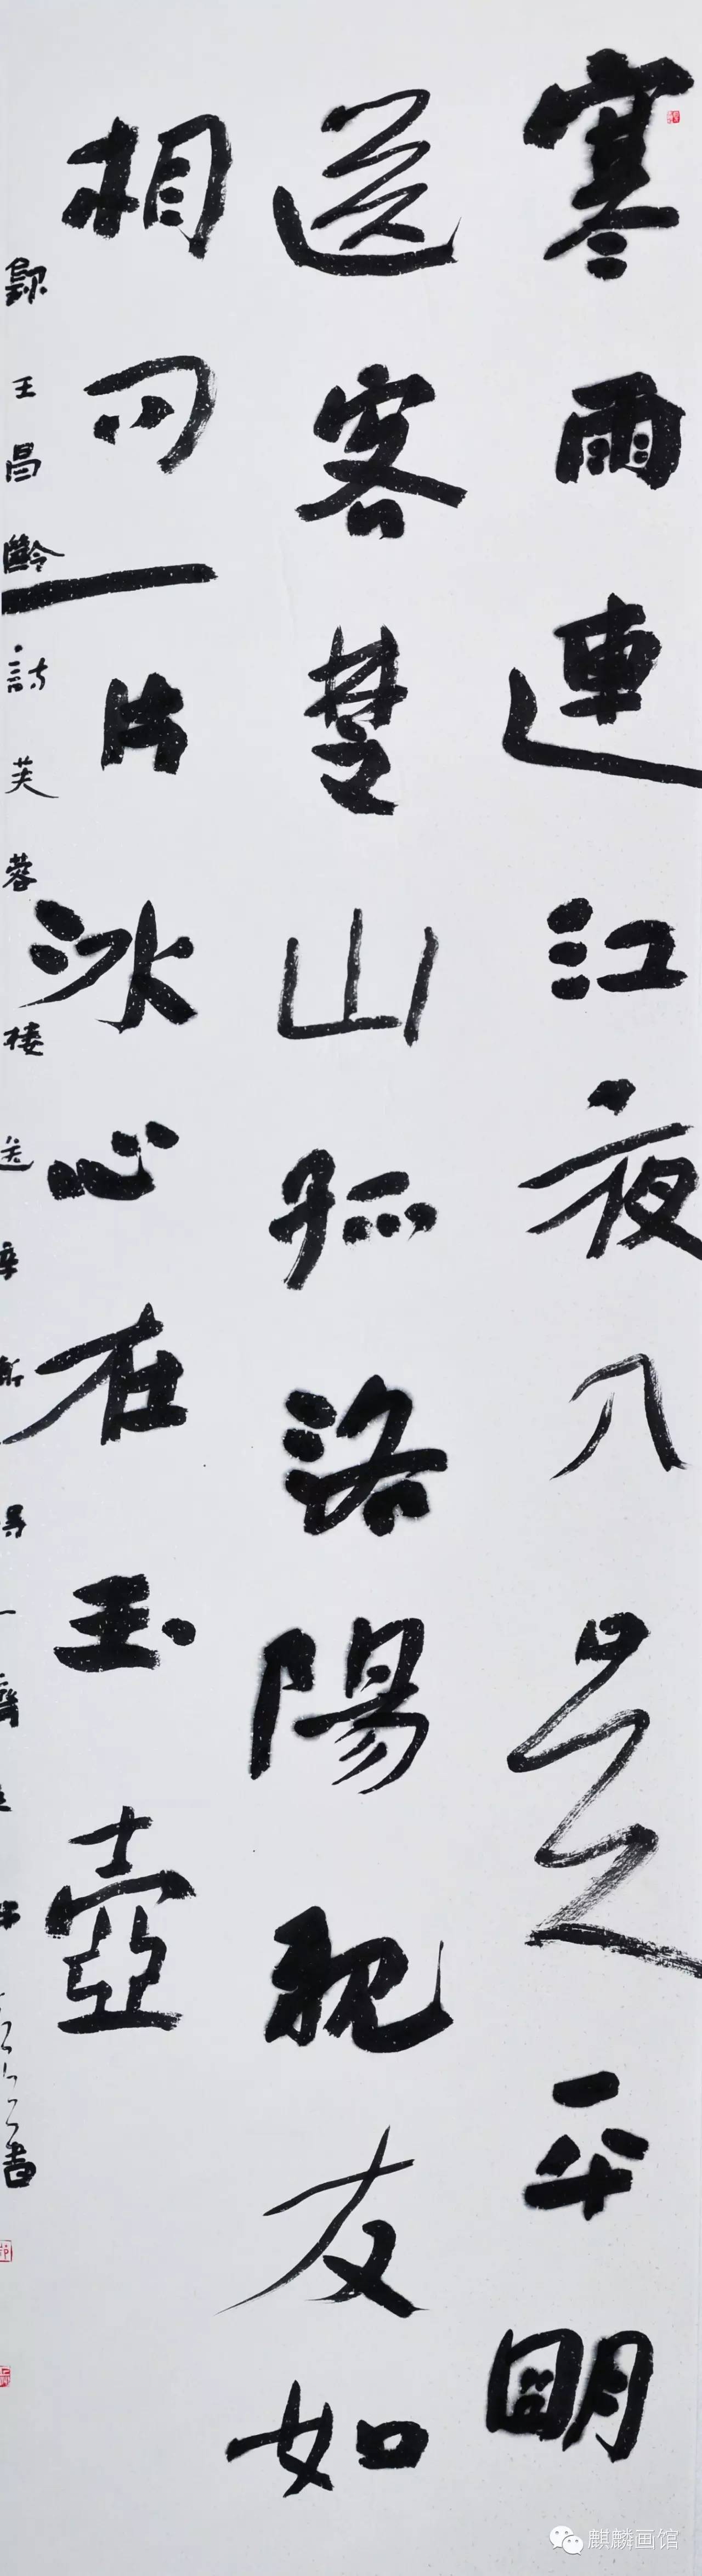 寒雨連江夜入吳平明
送客楚山孤洛陽親友如
相問一片冰心在玉壺
録王昌齡詩芙蓉樓送辛漸得一齋主書
麒麟画馆